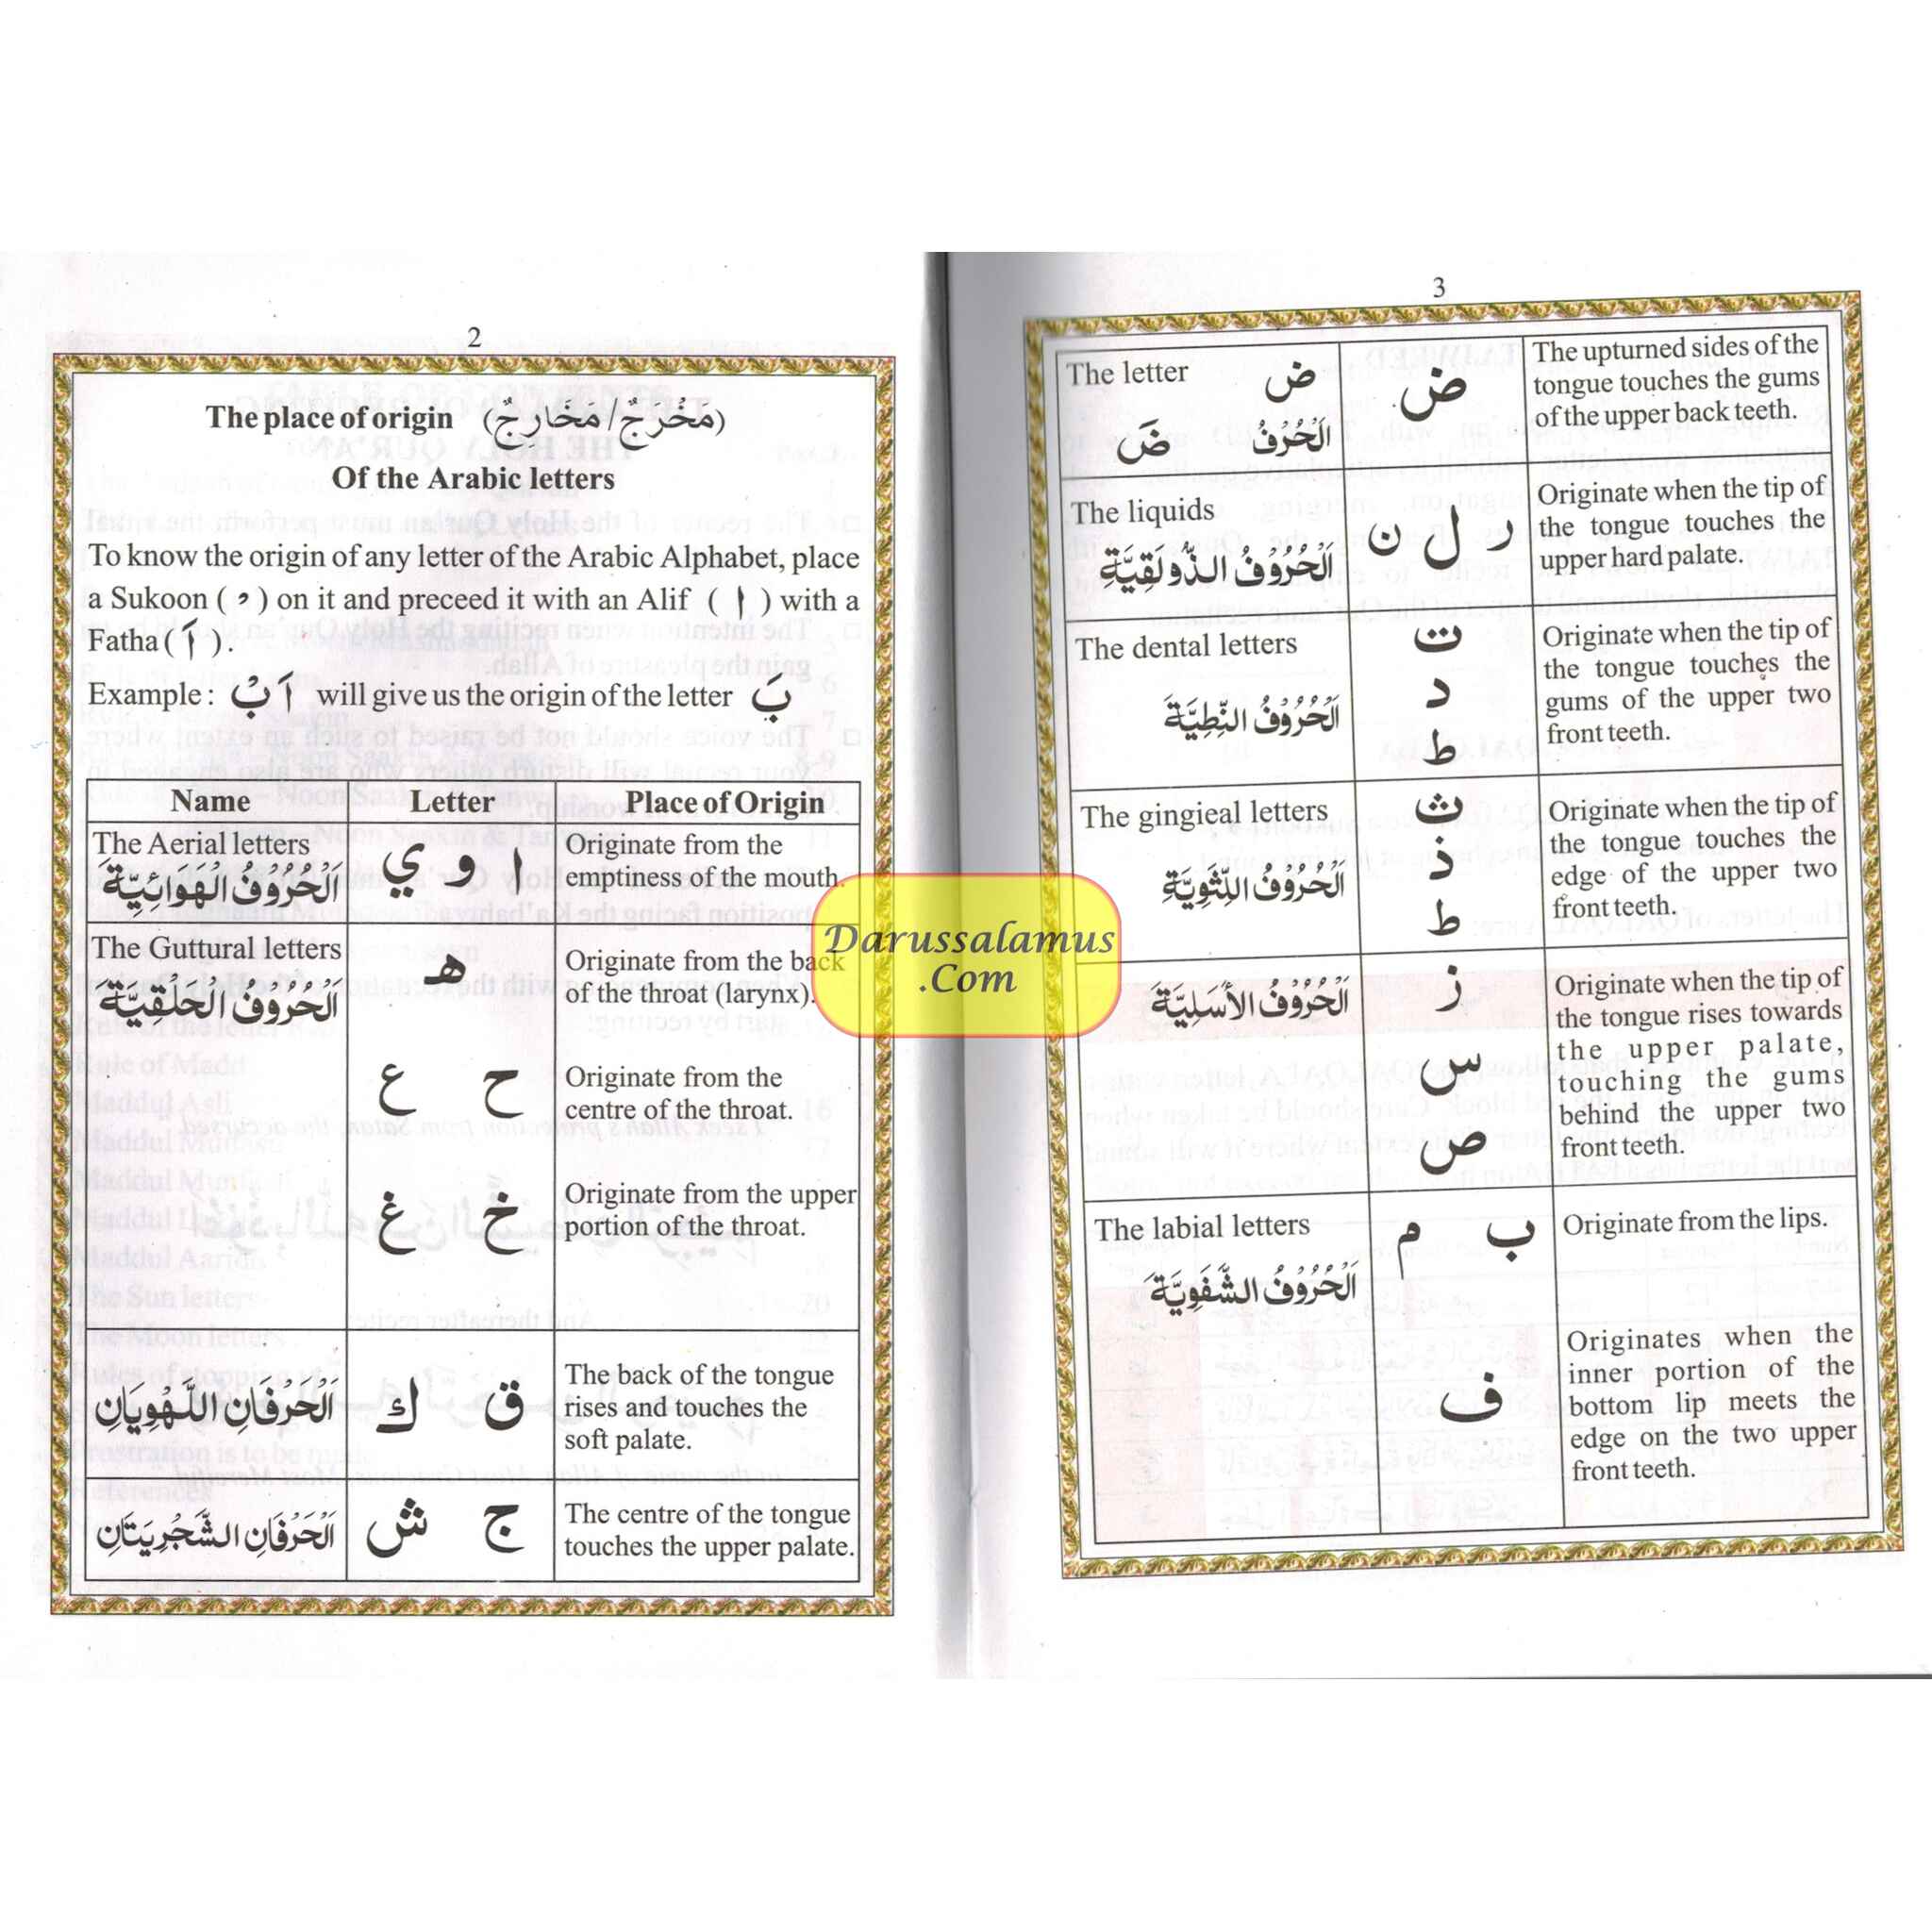 2
The place of origin (مَخْرَجٌ/مَخَارِجٌ)
Of the Arabic letters
To know the origin of any letter of the Arabic Alphabet, place
a Sukoon ( ْ ) on it and preceed it with an Alif ( ا ) with a
Fatha ( اَ ).
Example : اَبْ will give us the origin of the letter بَ
Name Letter Place of Origin
The Aerial letters
اَلْحُرُوْفُ الْهَوَائِيَّةَ
ا و ي
Originate from the
emptiness of the mouth.
The Guttural letters
اَلْحُرُوْفُ الْحَلْقِيَّةَ
ه
Originate from the back
of the throat (larynx).
ح ع
Originate from the
centre of the throat.
خ غ
Originate from the upper
portion of the throat.
اَلْحَرْفَانِ اللَّهْوِيَانِ
ق ك
The back of the tongue
rises and touches the
soft palate.
اَلْحَرْفَانِ الشَّجْرِيَتَانِ
ج ش
The centre of the tongue
touches the upper palate.
Darussalamus
.Com
3
The letter ض
اَلْحُرْفُ ضَ
ض
The upturned sides of the
tongue touches the gums
of the upper back teeth.
The liquids
اَلْحُرُوْفُ الذُّولَقِيَّةَ
ر ل ن
Originate when the tip of
the tongue touches the
upper hard palate.
The dental letters
اَلْحُرُوْفُ النِّطِيَّةَ
ت
د
ط
Originate when the tip of
the tongue touches the
gums of the upper two
front teeth.
The gingieal letters
اَلْحُرُوْفُ اللِّثْوِيَّةَ
ث
ذ
ط
Originate when the tip of
the tongue touches the
edge of the upper two
front teeth.
اَلْحُرُوْفُ الأَسَلِيَّةَ
ز
س
ص
Originate when the tip of
the tongue rises towards
the upper palate,
touching the gums
behind the upper two
front teeth.
The labial letters
اَلْحُرُوْفُ الشَّفَوِيَّةَ
ب م
Originate from the lips.
ف
Originates when the
inner portion of the
bottom lip meets the
edge on the two upper
front teeth.